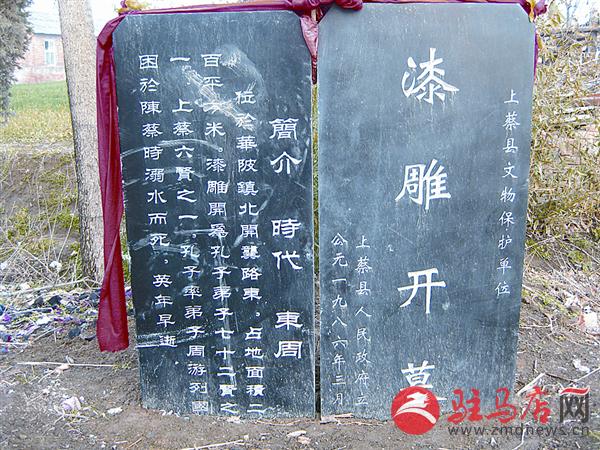 上蔡县文物保护单位
漆雕开墓
上蔡县人民政府立
公元一九八六年三月
簡介 時代 東周
位於華陂鎮北開龔路東。占地面積二
百平方米。漆雕開爲孔子弟子七十二賢之
一。上蔡六賢之一孔子率弟子周游列國
困於陳蔡時溺水而死。英年早逝
驻马店网
www.zmdnews.cn